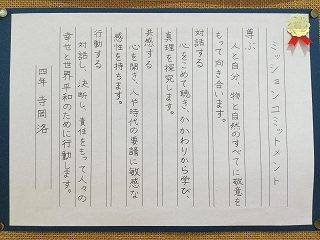 ミッションコミットメント
尊ぶ
人と自分、物と自然のすべてに敬意を
もって向き合います。
対話する
心をこめて聴き、かかわりから学び、
真理を探究します。
共感する
心を開き、人や時代の要請に敏感な
感性を持ちます。
行動する
対話し、決断し、責任をもって人々の
幸せと世界平和のために行動します。
四年 寺岡 洛